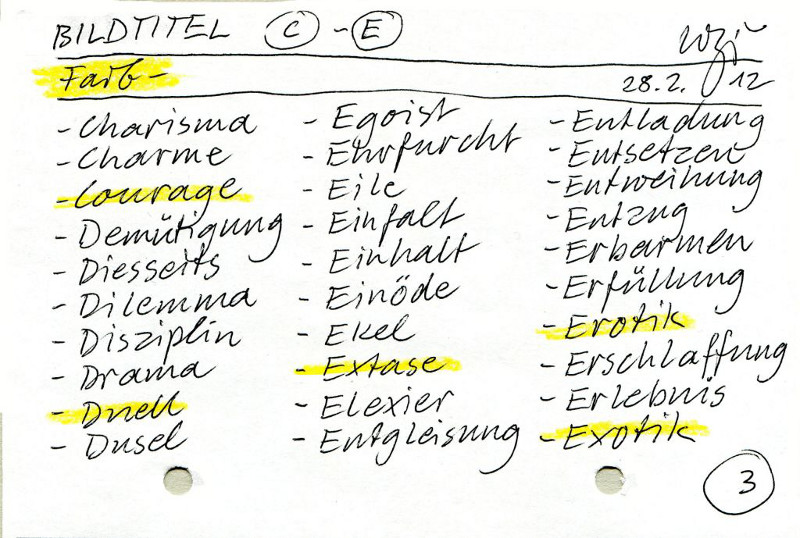 BILDTITEL C - E
Farb-
28.2.12
- Charisma
- Charme
- Courage
- Demütigung
- Diesseits
- Dilemma
- Disziplin
- Drama
- Duell
- Dusel
- Egoist
- Ehrfurcht
- Eile
- Einfalt
- Einhalt
- Einöde
- Ekel
- Extase
- Elexier
- Entgleisung
- Entladung
- Entsetzen
- Entweihung
- Entzug
- Erbarmen
- Erfüllung
- Erotik
- Erschlaffung
- Erlebnis
- Exotik
3